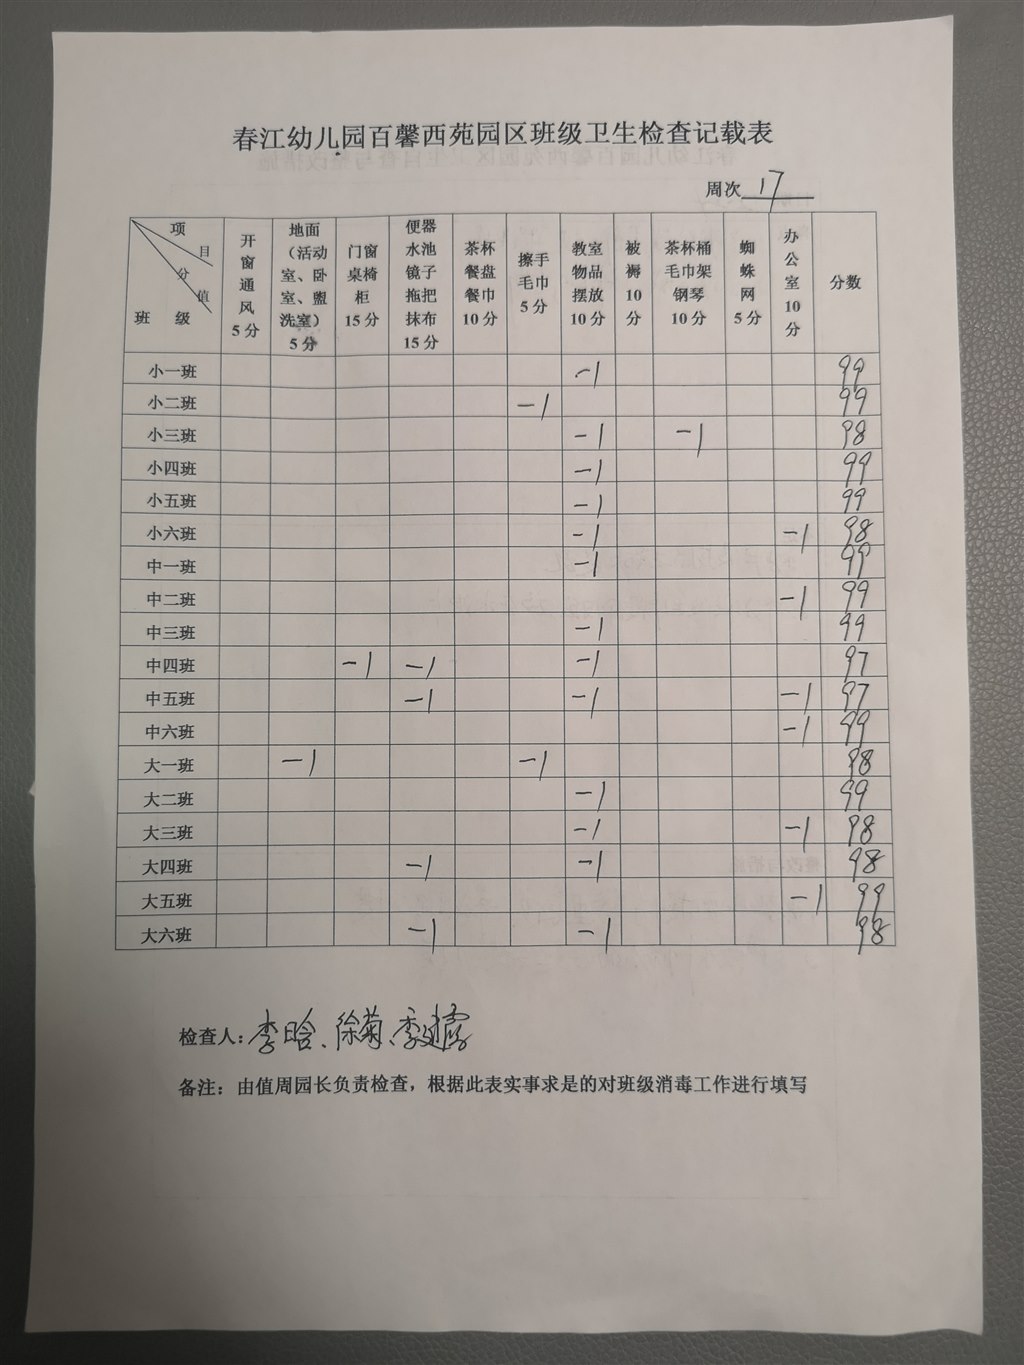 春江幼儿园百馨西苑园区班级卫生检查记载表
周次 17
项目 分值 班级 开窗通风5分 地面（活动室、卧室、盥洗室）5分 门窗桌椅柜15分 便器水池镜子拖把抹布15分 茶杯餐盘餐巾10分 擦手毛巾5分 教室物品摆放10分 被褥10分 茶杯桶毛巾架钢琴10分 蜘蛛网5分 办公室10分 分数
小一班 -1 99
小二班 -1 99
小三班 -1 -1 98
小四班 -1 99
小五班 -1 99
小六班 -1 -1 98
中一班 -1 99
中二班 -1 99
中三班 -1 99
中四班 -1 -1 -1 97
中五班 -1 -1 -1 97
中六班 -1 99
大一班 -1 -1 98
大二班 -1 99
大三班 -1 -1 98
大四班 -1 -1 98
大五班 -1 99
大六班 -1 -1 98
检查人：李晗、徐菊、季建霞
备注：由值周园长负责检查，根据此表实事求是的对班级消毒工作进行填写